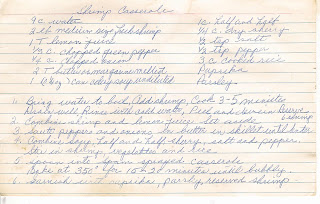 Shrimp Casserole
9 c. water 1c. half and half
2 lb medium size fresh shrimp 1/4 c. dry sherry
1 T lemon juice 1/2 tsp salt
1/4 c. chopped green pepper 1/4 tsp pepper
1/4 c. chopped onion 3 c cooked rice
2 T butter or margarine melted Paprika
1 10 3/4oz can celery soup undiluted Parsley
1. Bring water to boil, Add shrimp, Cook 3-5 minutes
Drain well, Rinse with cold water, Peel and devein Reserve
2. Combine shrimp and lemon juice set aside 6 shrimp
3. Sauté peppers and onions in butter in skillet until tender
4. Combine soup, half and half, sherry, salt and pepper,
stir in shrimp, vegetables and rice
5. Spoon into spam sprayed casserole
Bake at 350° for 15-20 minutes until bubbly.
6. Garnish with paprika, parsley, reserved shrimp